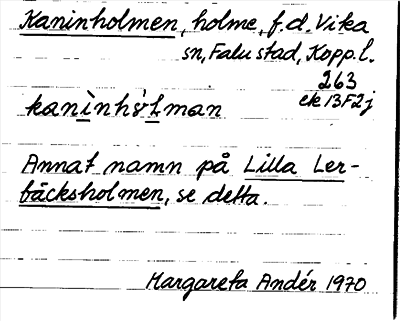 Kaninholmen, holme, f.d. Vika
sn, Falu stad, Kopp.l.
263
ek 13F2j
kanìnhò̀Lman
Annat namn på Lilla Ler-
bäcksholmen, se detta.
Margareta Andér 1970